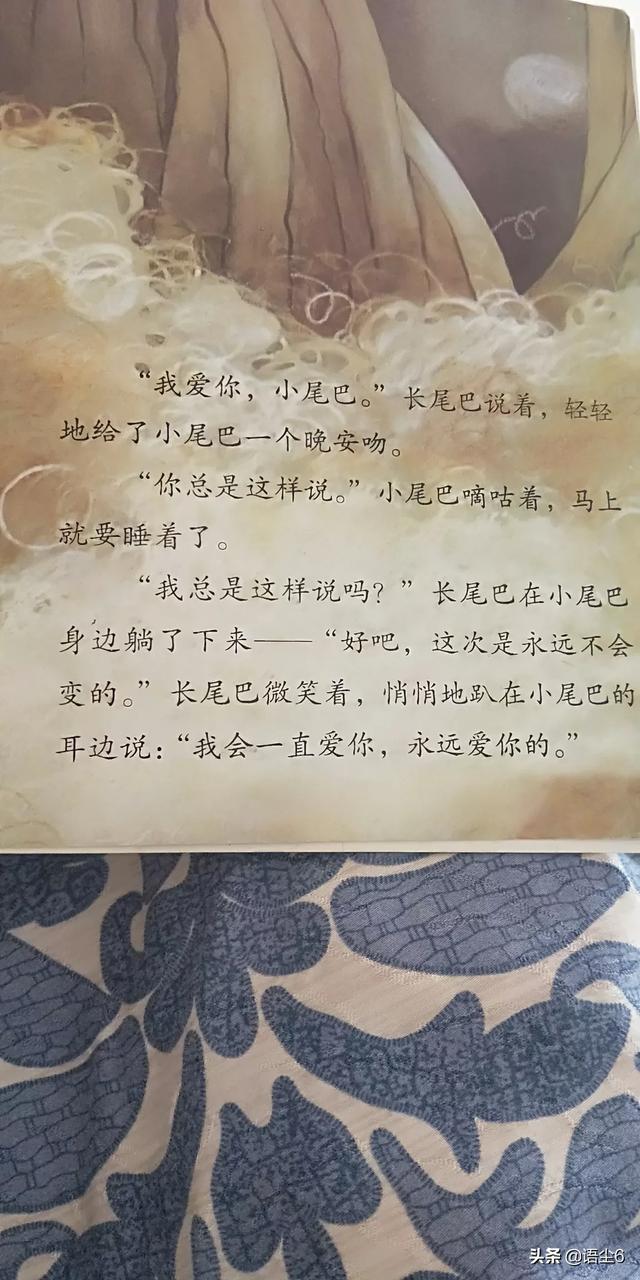 “我爱你，小尾巴。”长尾巴说着，轻轻
地给了小尾巴一个晚安吻。
“你总是这样说。”小尾巴嘀咕着，马上
就要睡着了。
“我总是这样说吗？”长尾巴在小尾巴
身边躺了下来——“好吧，这次是永远不会
变的。”长尾巴微笑着，悄悄地趴在小尾巴的
耳边说：“我会一直爱你，永远爱你的。”
头条 @语尘6